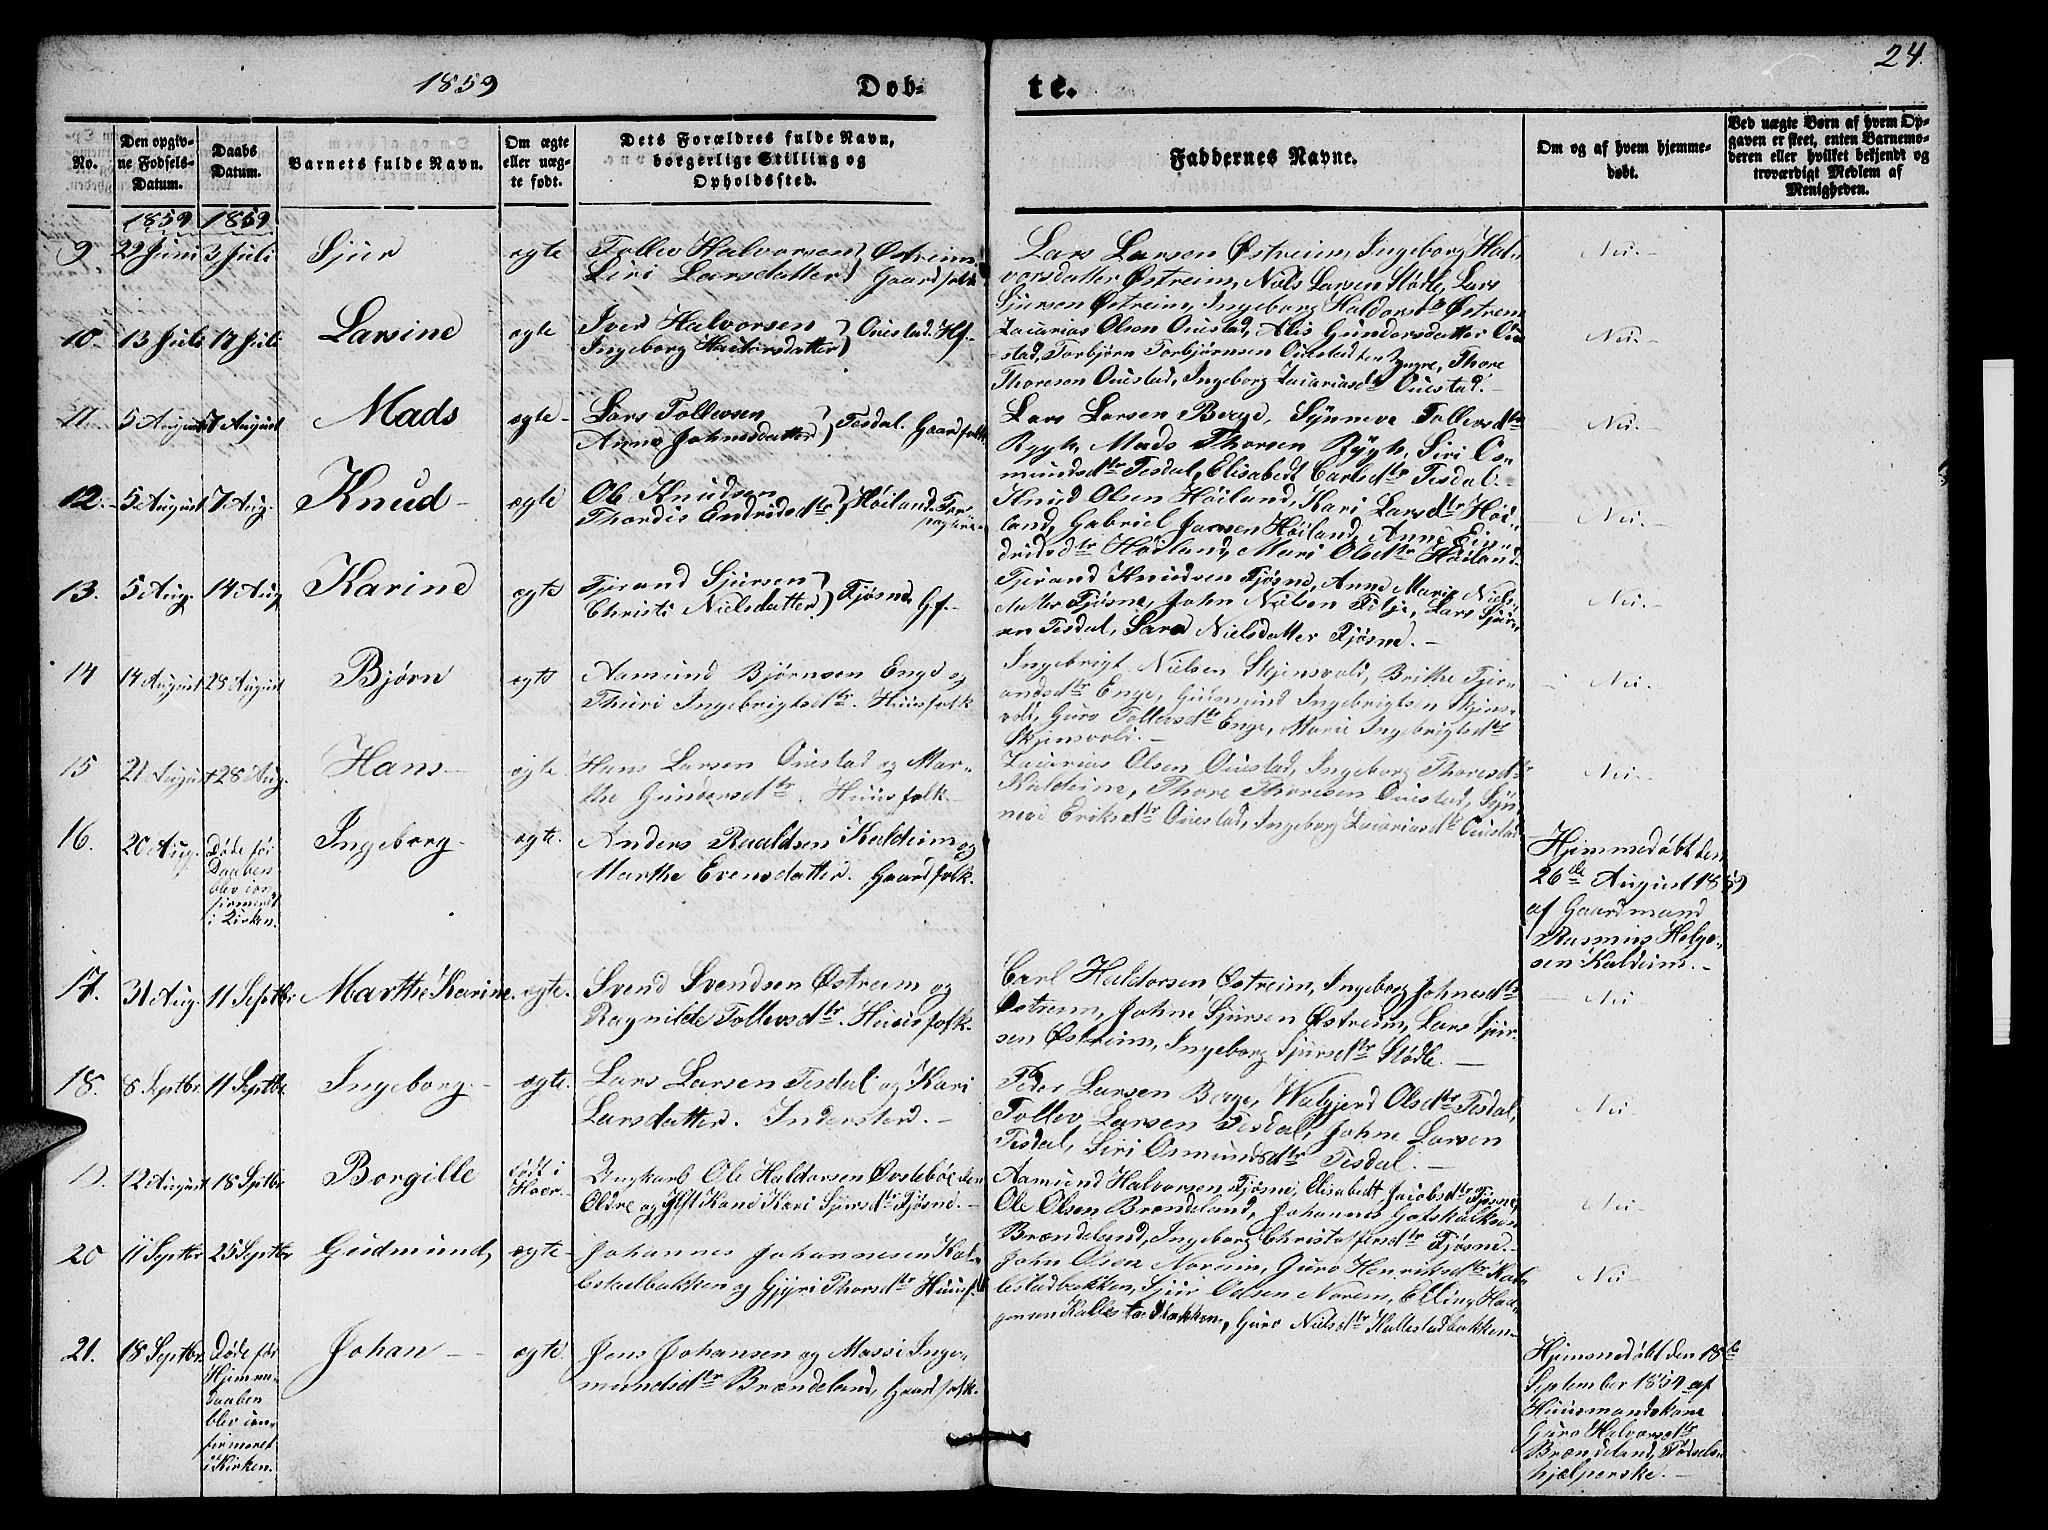 24.
1859
Døb-
te.
No.
Den opgiv-
ne Fødsels-
Datum.
Daabs
Datum.
Barnets fulde Navn.
Om ægte
eller uæg-
te født.
Dets Forældres fulde Navn,
borgerlige Stilling og
Opholdssted.
Faddernes Navne.
Om og af hvem hjemme-
døbt.
Ved uægte Børn af hvem Op-
gaven er skeet, enten Barnemo-
deren eller hvilket bekjendt og
troværdigt Medlem af
Menigheden.
1859 1859
9 29 Juni 3 Juli Sjur ægte Tollev Halvorsen Østreim
Siri Larsdatter Gaardfolk
Lars Larsen Østreim, Ingeborg Hal-
vorsdatter Østreim, Niels Larsen Stødle, Lars
Sjursen Østreim, Ingeborg Haldorsdtr Østrem
Nei.
10. 13 Juli 17 Juli Larsine ægte Iver Halvorsen
Ingeborg Haldorsdatter Ouestad. Hf.
Zacarias Olsen Ouestad, Alis Gundersdatter Oue-
stad, Torbjørn Torbjørnsen Ouestad den Yngre, Thore
Thoresen Ouestad, Ingeborg Zacariasdtr Ouestad.
Nei.
11. 5 August 7 August Mads ægte Lars Tollevsen
Anna Johnesdatter Tesdal. Gaardfolk
Lars Larsen Berge, Synneve Tollevsdtr
Rygh, Mads Thorsen Rygh, Siri Os-
mundsdtr Tesdal, Elisabedt Carlsdtr Tesdal.
Nei.
12. 5 August 7 Aug. Knud ægte Ole Knudsen
Thordis Endridsdtr Høiland.
Knud Olsen Høiland, Kari Larsdtr Høi-
land, Gabriel Jansen Høiland, Anne Ein-
dridsdtr Høiland, Mari Olsdtr Høiland.
Nei.
13. 5 Aug. 14 Aug Karine ægte Tjerand Sjursen
Christi Nielsdatter Fjøsne Gf.
Tjerand Knudsen Fjøsne, Anne Marie Niels-
datter Fjøsne, John Nielsen Tilje, Lars Sjurs-
en Tesdal, Sara Nielsdatter Fjøsne.
Nei.
14 14 August 28 August Bjørn ægte Aamund Bjørnsen Enge og
Thuri Ingebrigtsdtr. Huusfolk
Ingebrigt Nielsen Skjensvold, Brithe Tjer-
andsdtr Enge, Gudmund Ingebrigtsen Skjens-
vold, Guro Tollevsdtr Enge, Mari Ingebrigtsdtr
Skjensvold.
Nei.
15 21 August 28 Aug. Hans ægte Hans Larsen Ouestad og Mar-
the Gundersdtr. Huusfolk.
Zacarias Olsen Ouestad, Ingeborg Thoresdtr
Kaldeim, Thore Thoresen Ouestad, Syn-
neve Eriksdtr Ouestad, Ingeborg Zacariasdtr Ouestad
Nei.
16. 20 Aug. Døde før
Daaben
blev con-
firmeret
i Kirken.
Ingeborg ægte. Anders Roaldsen Kaldeim og
Marthe Evensdatter. Gaardfolk.
Hjemmedøbt den
26de August 1859
af Gaardmand
Rasmus Helge-
sen Kaldeim.
17. 31 Aug. 11 Septbr Marthe Karine. ægte. Svend Svendsen Østreim og
Ragnilde Tollevsdtr. Huusfolk.
Carl Haldorsen Østreim, Ingeborg Johnesdtr
Østrem, Johne Sjursen Østreim, Lars Sjur-
sen Østreim, Ingeborg Sjursdtr Stødle.
Nei
18. 8 Septbr. 11 Septbr Ingeborg. ægte. Lars Larsen Tesdal og Kari
Larsdatter. Indersted.
Peder Larsen Berge, Walgjerd Olsdtr Tesdal,
Tollev Larsen Tesdal, Johne Larsen
Tesdal, Siri Osmundsdtr Tesdal.
Nei
12 August 18 Septbr Borgille født i
Hoer-
Ungkarl Ole Haldorsen Øvstebøe den
Eldre og Gift Kone Kari Sjursdtr Fjøsne.
Aamund Halvorsen Fjøsne, Elisabedt Jacobsdtr Fjøsne,
Ole Olsen Brændeland, Johannes Gotskalksen
Brændeland, Ingeborg Christofersdtr Fjøsne.
Nei
20 11 Septbr 25 Septbr Gudmund, ægte Johannes Johannesen Kal-
lestadbakken og Gjyri Thorsdtr Huusf.
John Olsen Noreim, Guro Henriksdtr Kal-
lestadbakken, Sjur Odsen Norem, Elling Haa-
gensen Kallestadbakken, Guro Nielsdtr Kallestadbakken
Nei
21. 18 Septbr. Døde før
Hjemme-
daaben
blev con-
firmeret
i Kirken.
Johan ægte. Jens Johansen og Massi Inge-
mundsdtr Brændeland, Gaardfolk.
Hjemmedøbt den 18de
September 1859 af
Huusmandskone
Guro Halvorsdtr
Brændeland, Fødsels-
hjælperske.